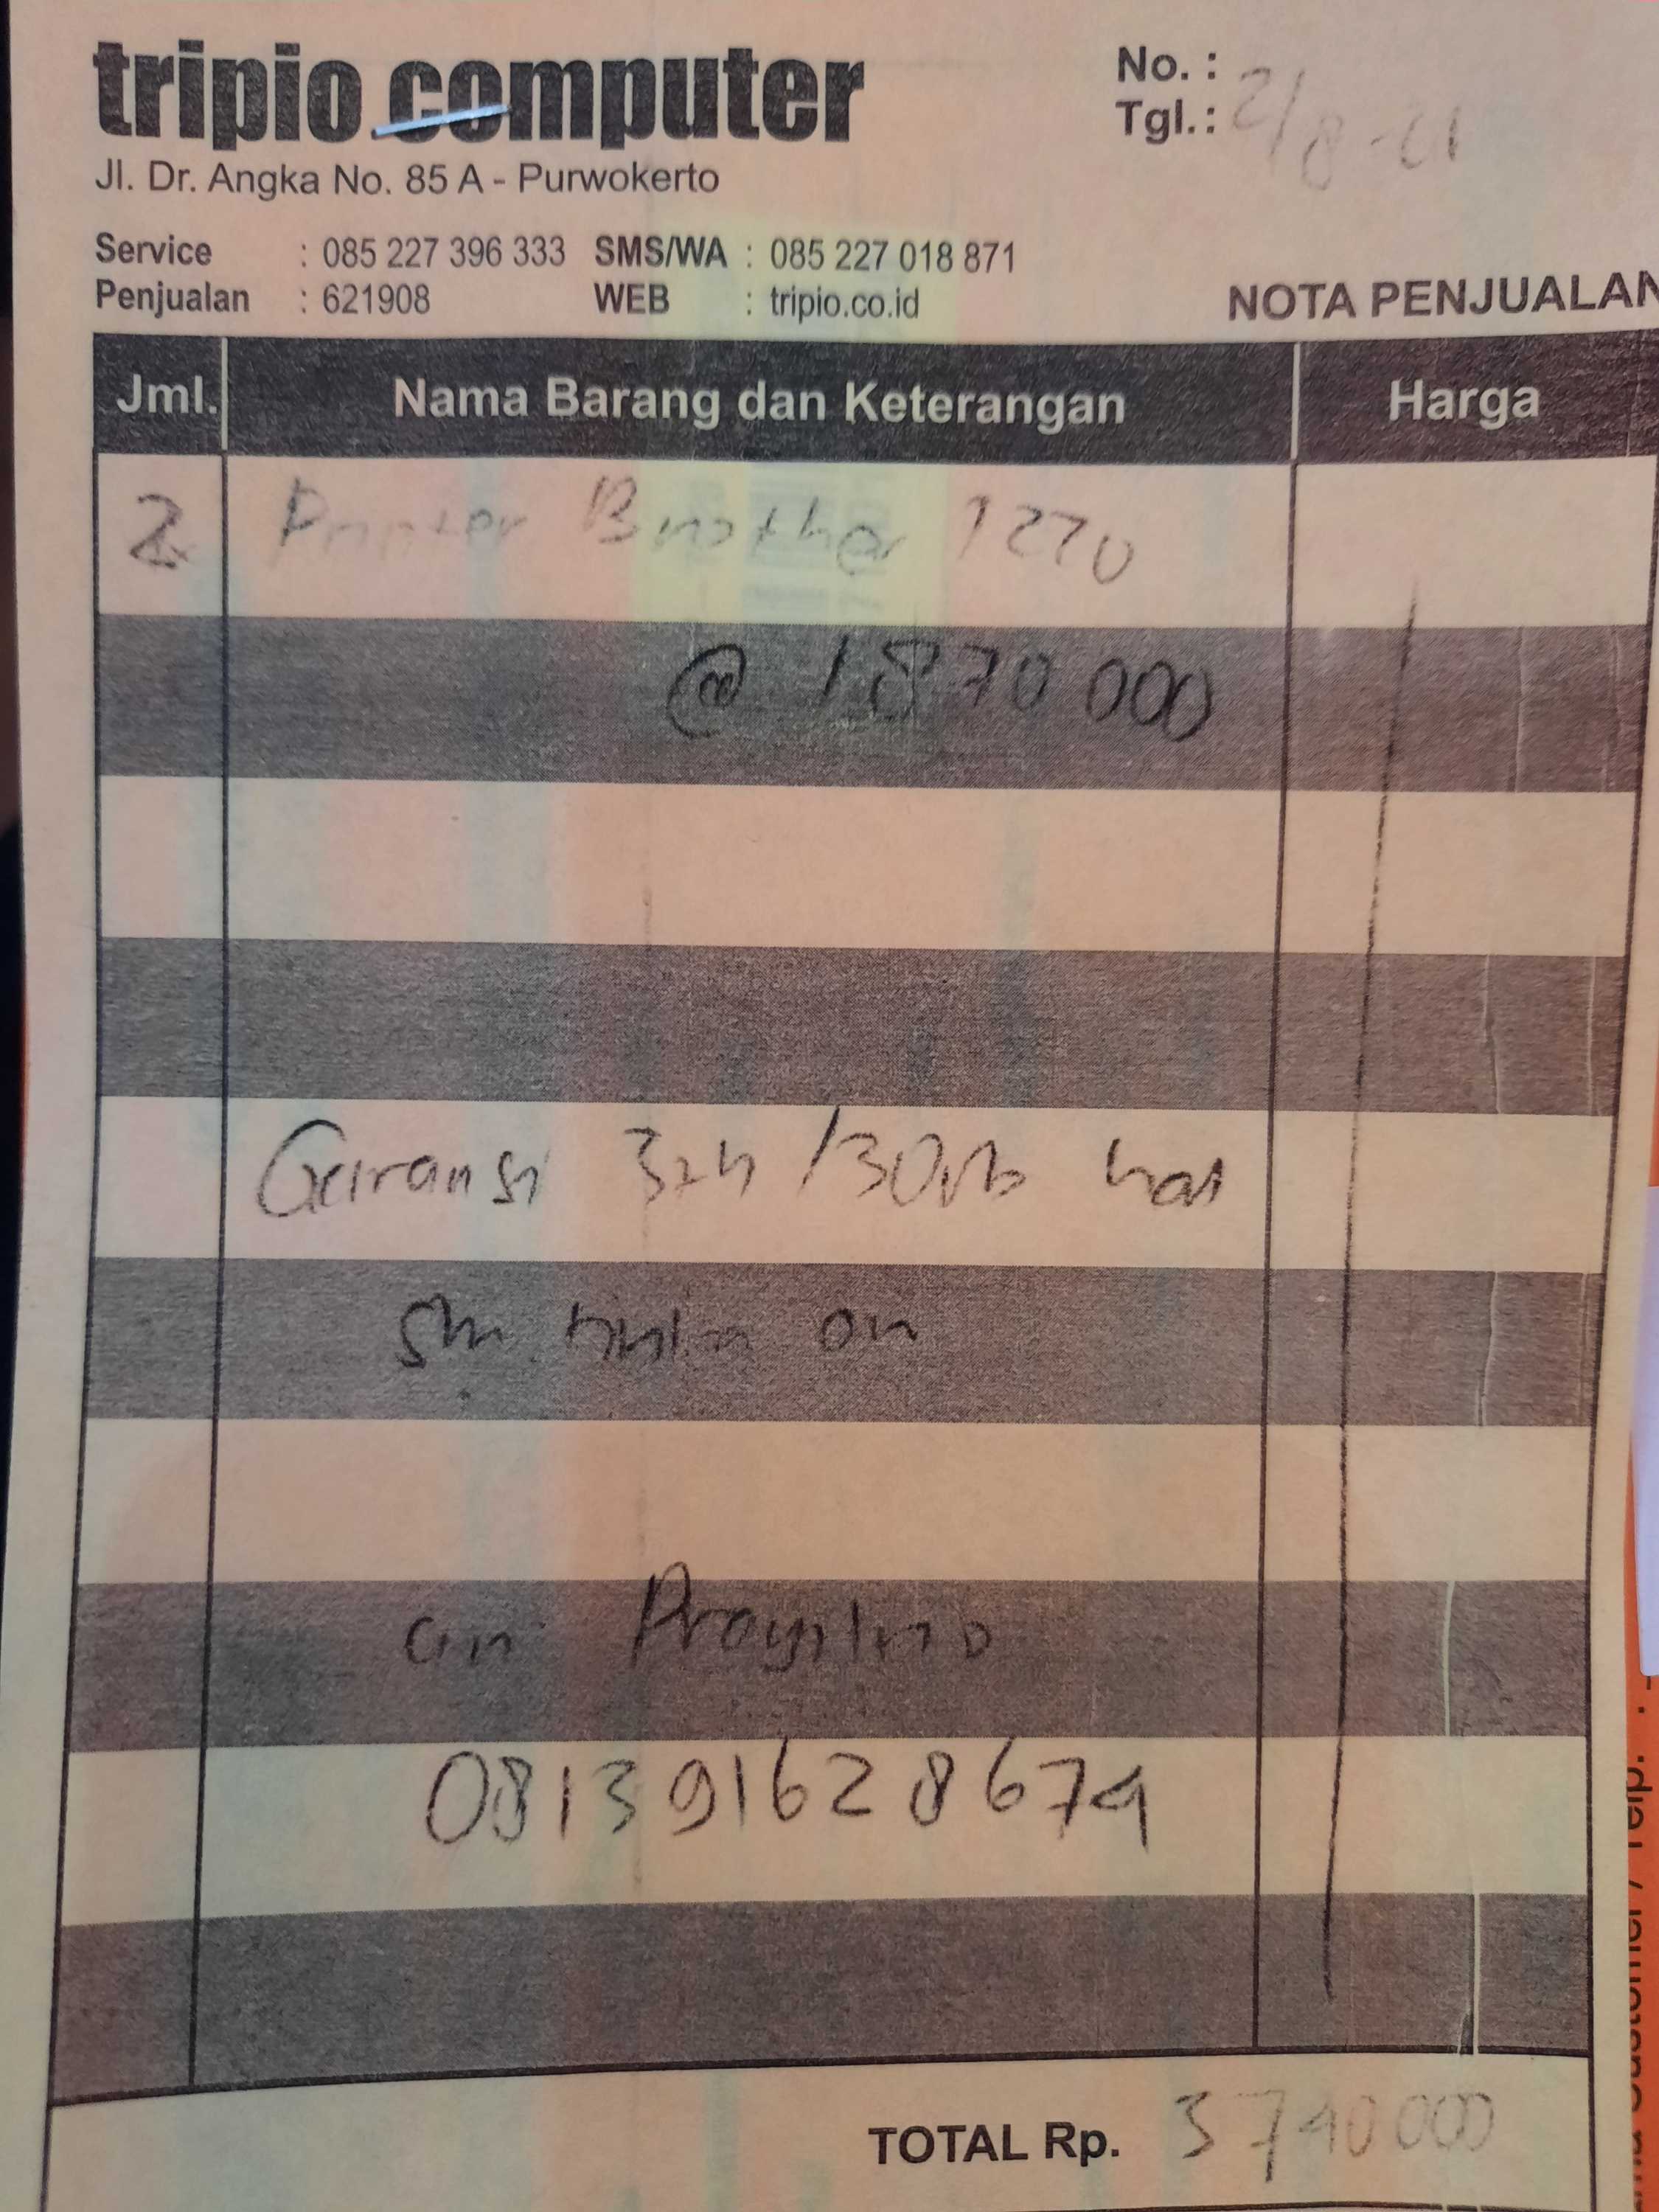 tripio computer
No. :
Tgl. : 2/8-21
Jl. Dr. Angka No. 85 A - Purwokerto
Service : 085 227 396 333 SMS/WA : 085 227 018 871
Penjualan : 621908 WEB : tripio.co.id
NOTA PENJUALAN
Jml. Nama Barang dan Keterangan Harga
2 Printer Brother 1270
@ 1870 000
Garansi 3th /30rb hal
on
an
081391628674
TOTAL Rp. 3740000
Customer / Telp. :